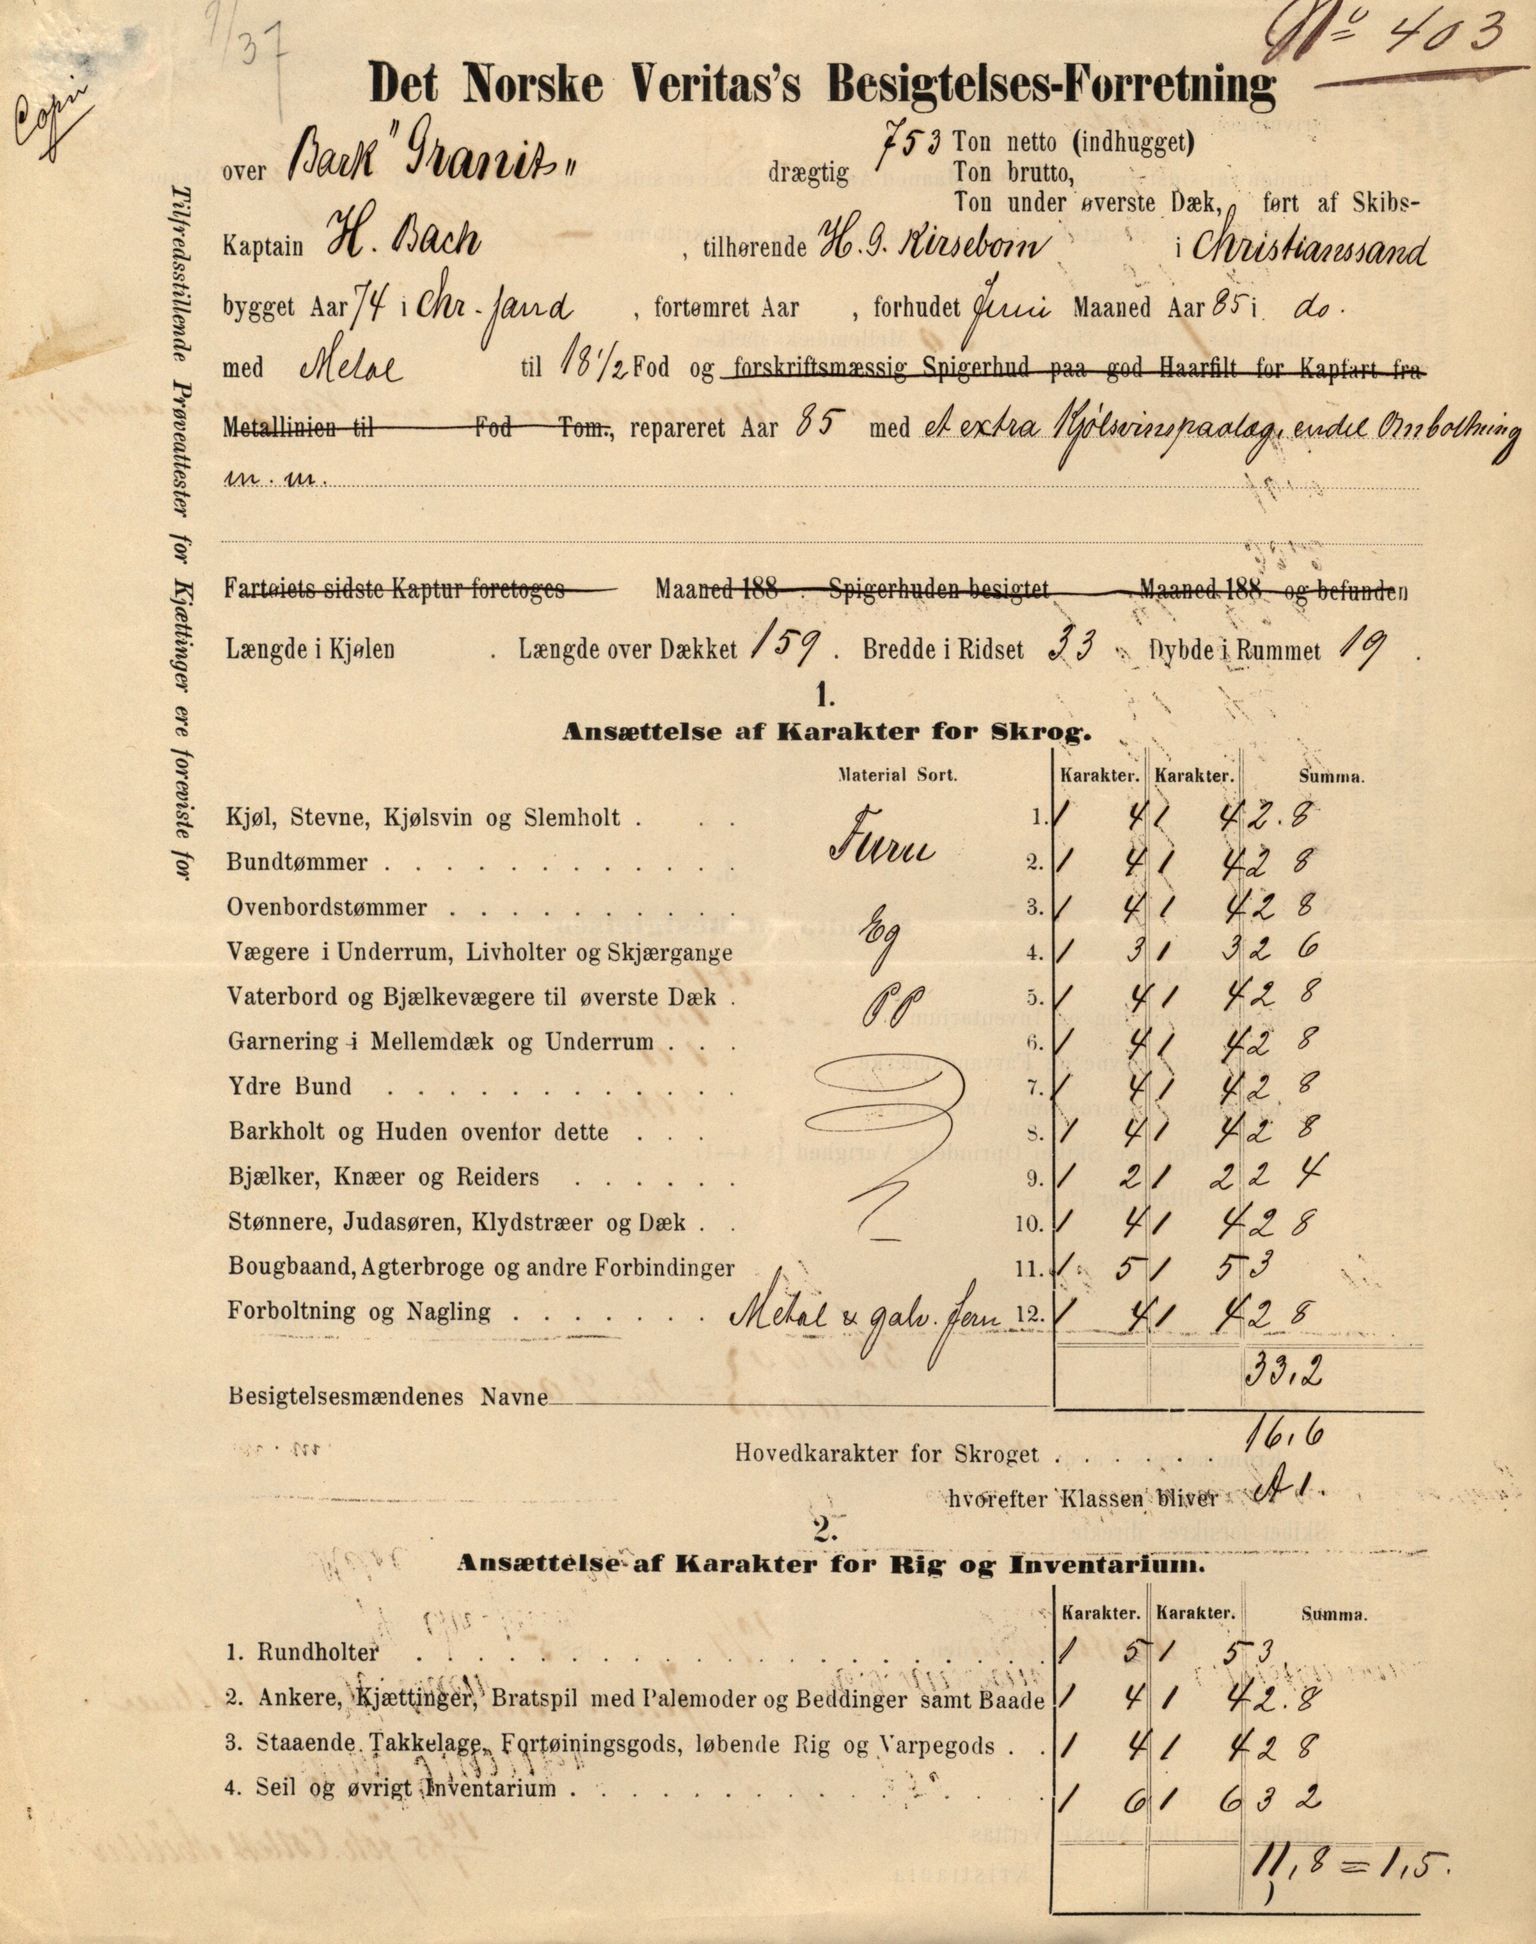 9/37
No 403
Copi
Det Norske Veritas's Besigtelses-Forretning
over Bark "Granit" drægtig 753 Ton netto (indhugget)
Ton brutto,
Ton under øverste Dæk, ført af Skibs-
Kaptain H. Bach , tilhørende H. G. Kirsebom i Christianssand
bygget Aar 74 i Chr. sand , fortømret Aar , forhudet Juni Maaned Aar 85 i do.
med Metal til 18 1/2 Fod og forskriftsmæssig Spigerhud paa god Haarfilt for Kapfart fra
Metallinien til Fod Tom., repareret Aar 85 med et extra Kjølsvinspaalæg, endel Omboltning
m. m.
Fartøiets sidste Kaptur foretoges Maaned 188 . Spigerhuden besigtet Maaned 188 og befunden
Længde i Kjølen . Længde over Dækket 159 . Bredde i Ridset 33 Dybde i Rummet 19 .
Tilfredsstillende Prøveattester for Kjættinger ere foreviste for
1.
Ansættelse af Karakter for Skrog.
Material Sort. Karakter. Karakter. Summa.
Kjøl, Stevne, Kjølsvin og Slemholt . . . 1. 1 4 1 4 2.8
Furu
Bundtømmer . . . . . . . . . . . . 2. 1 4 1 4 2 8
Ovenbordstømmer . . . . . . . . . . 3. 1 4 1 4 2 8
Eg
Vægere i Underrum, Livholter og Skjærgange 4. 1 3 1 3 2 6
Vaterbord og Bjælkevægere til øverste Dæk . PP 5. 1 4 1 4 2 8
Garnering i Mellemdæk og Underrum . . . 6. 1 4 1 4 2 8
Ydre Bund . . . . . . . . . . . . 7. 1 4 1 4 2 8
Barkholt og Huden ovenfor dette . . . 8. 1 4 1 4 2 8
Bjælker, Knæer og Reiders . . . . . . 9. 1 2 1 2 2 4
Stønnere, Judasøren, Klydstræer og Dæk . . 10. 1 4 1 4 2 8
Bougbaand, Agterbroge og andre Forbindinger 11. 1 5 1 5 3
Forboltning og Nagling . . . . . . . Metal & galv. Jern 12. 1 4 1 4 2 8
33,2
Besigtelsesmændenes Navne
Hovedkarakter for Skroget . . . . . . 16,6
hvorefter Klassen bliver A 1.
2.
Ansættelse af Karakter for Rig og Inventarium.
Karakter. Karakter. Summa.
1. Rundholter . . . . . . . . . . 1 5 1 5 3
2. Ankere, Kjættinger, Bratspil med Palemoder og Beddinger samt Baade 1 4 1 4 2.8
3. Staaende Takkelage, Fortøiningsgods, løbende Rig og Varpegods . . 1 4 1 4 2 8
4. Seil og øvrigt Inventarium . . . . . . . . . . 1 6 1 6 3 2
11,8 = 1,5.